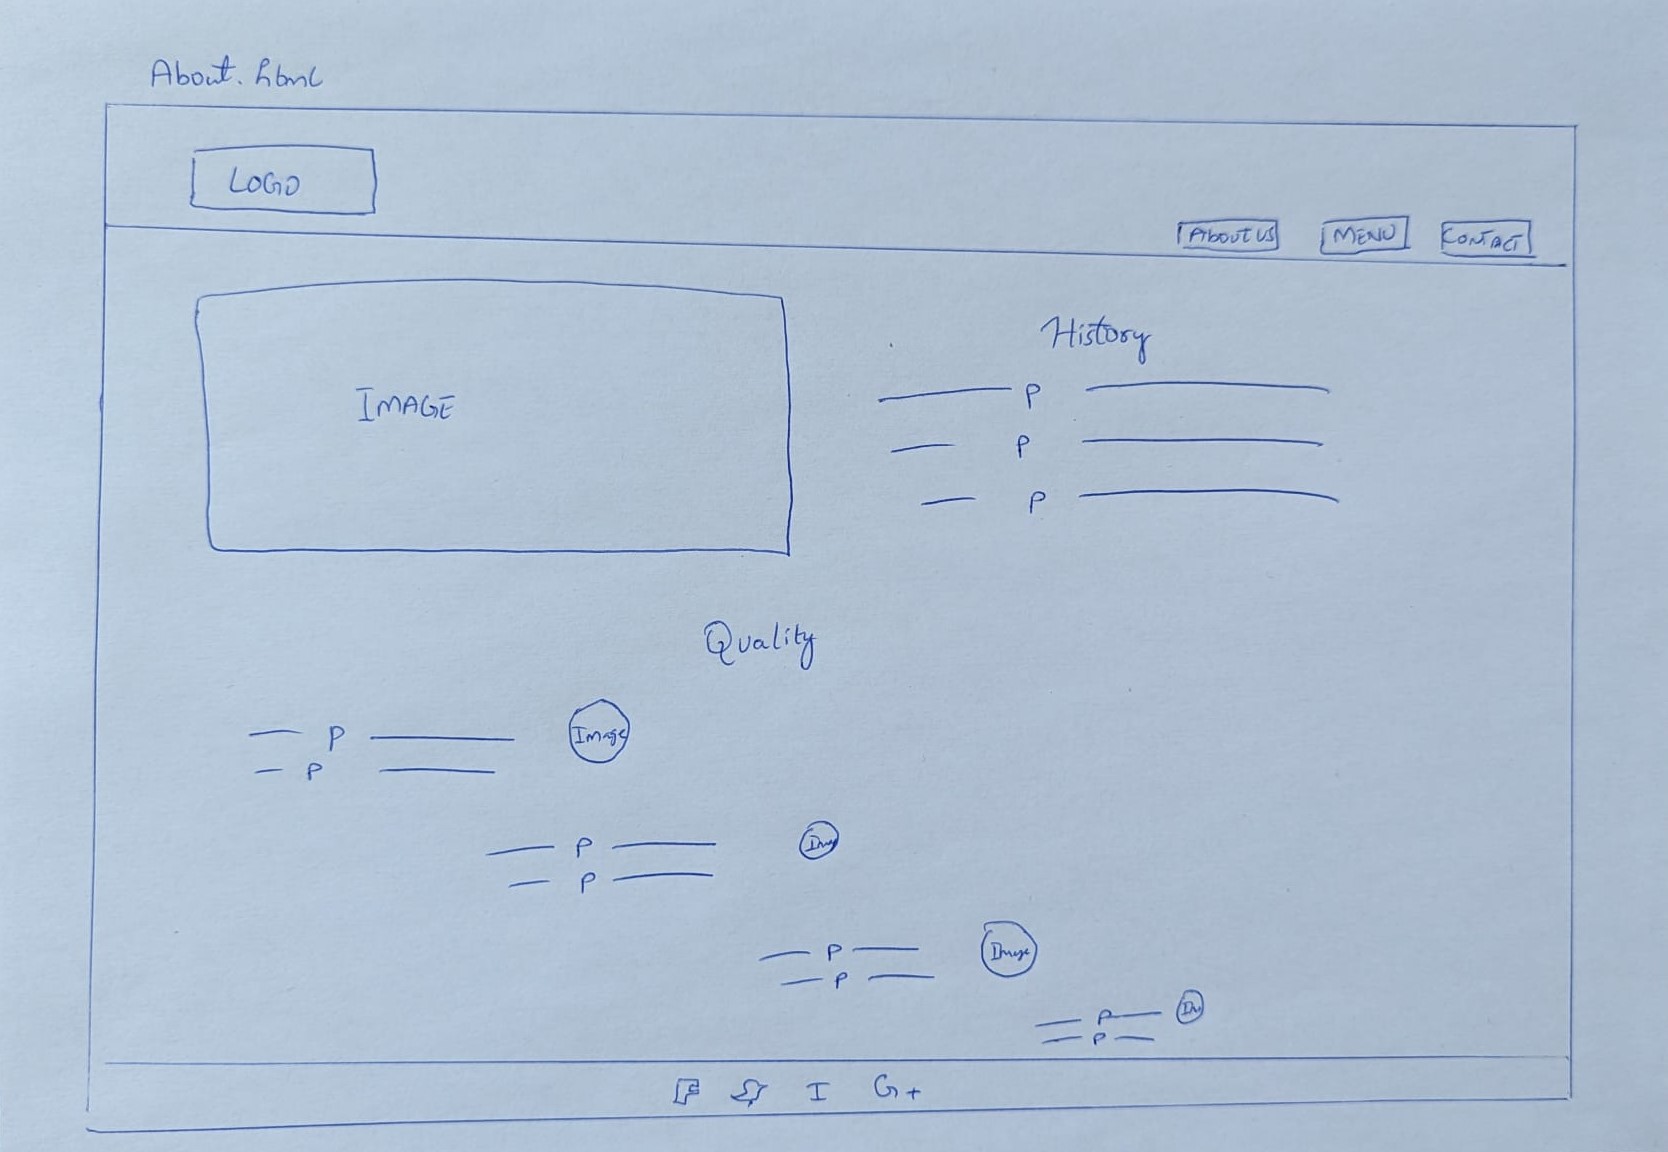 About.html
LOGO
ABOUT US MENU CONTACT
IMAGE
History
P
P
P
Quality
P Image
P
P
P
P Image
P
P
P
F I G+